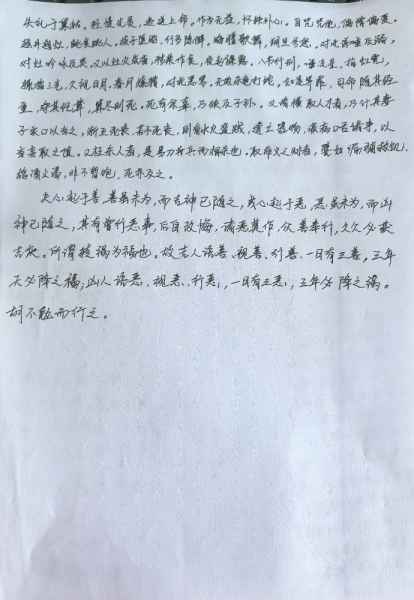 失礼于舅姑,轻慢先灵,违逆上命。作为无益,怀挟外心。自咒咒他,偏憎偏爱。
越井越灶,跳食跳人。损子堕胎,行多隐僻。晦腊歌舞,朔旦号怒。对北涕唾及溺,
对灶吟咏及哭。又以灶火烧香,秽柴作食。夜起裸露,八节行刑。唾流星,指虹霓,
辄指三光,久视日月。春月燎猎,对北恶骂。无故杀龟打蛇。如是等罪,司命随其轻
重,夺其纪算,算尽则死。死有余辜,乃殃及子孙。又诸横取人财者,乃计其妻
子家口以当之,渐至死丧。若不死丧,则有水火盗贼,遗亡器物,疾病口舌诸事,以
当妄取之值。又枉杀人者,是易刀兵而相杀也。取非义之财者,譬如漏脯救饥,
鸩酒止渴,非不暂饱,死亦及之。
夫心起于善,善虽未为,而吉神已随之;或心起于恶,恶虽未为,而凶
神已随之。其有曾行恶事,后自改悔,诸恶莫作,众善奉行,久久必获
吉庆。所谓转祸为福也。故吉人语善、视善、行善,一日有三善,三年
天必降之福;凶人语恶、视恶、行恶,一日有三恶,三年必降之祸。
胡不勉而行之。